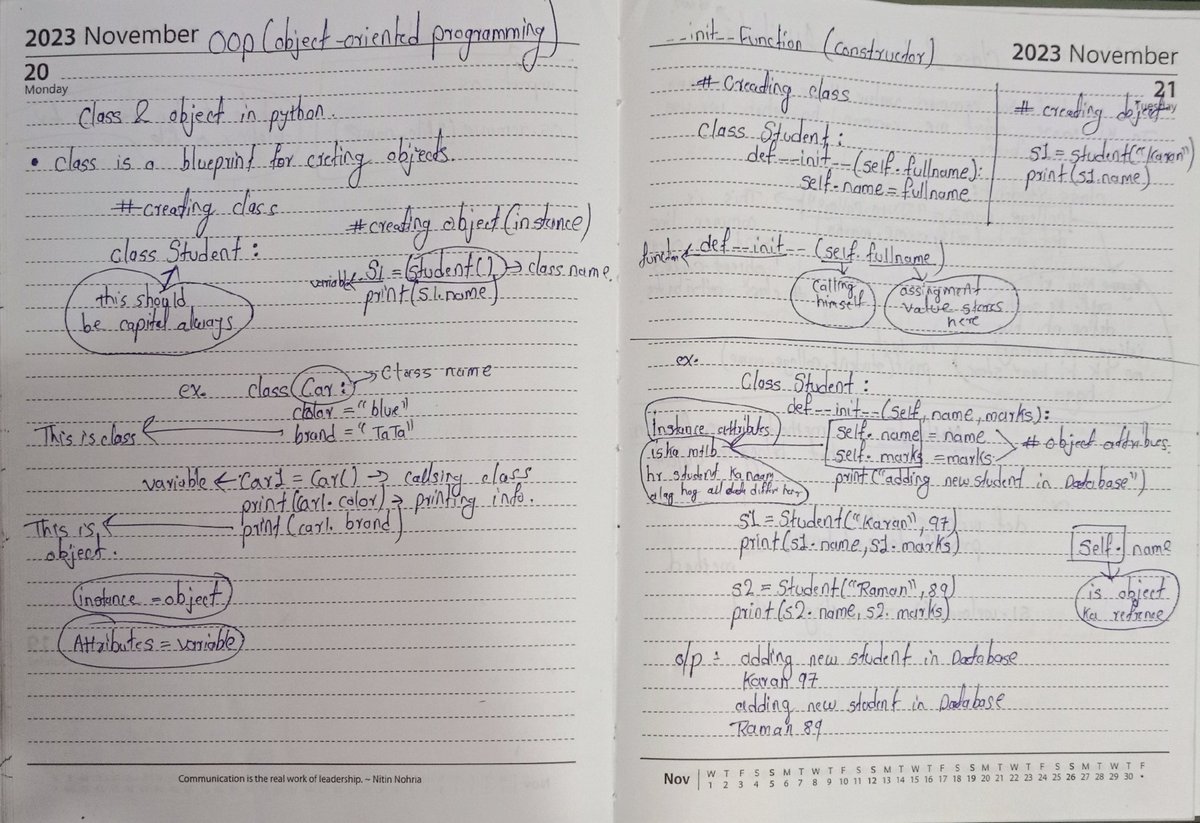 2023 November OOP (object-oriented programming)
20
Monday
Class & object in python.
• Class is a blueprint for creting objects.
#creating class
#creating object (instance)
class Student :
this should
be capital always
variable ← S1 = (student()) → class name
print(S1.name)
ex. class Car : → class name
color = "blue"
This is class ← brand = "TaTa"
variable ← Car1 = Car() → callsing class
print(Car1.color) → printing info.
This is ← print(car1.brand)
object.
instance = object
Attributes = variable
Communication is the real work of leadership. ~ Nitin Nohria
--init-- Function (Constructor)
2023 November
21
Tuesday
# Creading class
Class Student :
def--init--(self.fullname):
self.name = fullname
# creating object
S1 = student("Karan")
print(S1.name)
function ← def--init--(self.fullname)
calling
himself
assignment
value stores
here
ex.
Class Student :
def--init--(self, name, marks):
self.name = name
self.marks = marks
# object attributes
print("adding new student in Database")
Instance attributes
iska mtlb
hr student ka naam
alag hog
s1 = Student("Karan", 97)
print(s1.name, s1.marks)
s2 = Student("Raman", 89)
print(s2.name, s2.marks)
self. name
is object
ka refrence
o/p : adding new student in Database
Karan 97
adding new student in Database
Raman 89
Nov
W T F S S M T W T F S S M T W T F S S M T W T F S S M T W T F
1 2 3 4 5 6 7 8 9 10 11 12 13 14 15 16 17 18 19 20 21 22 23 24 25 26 27 28 29 30 •